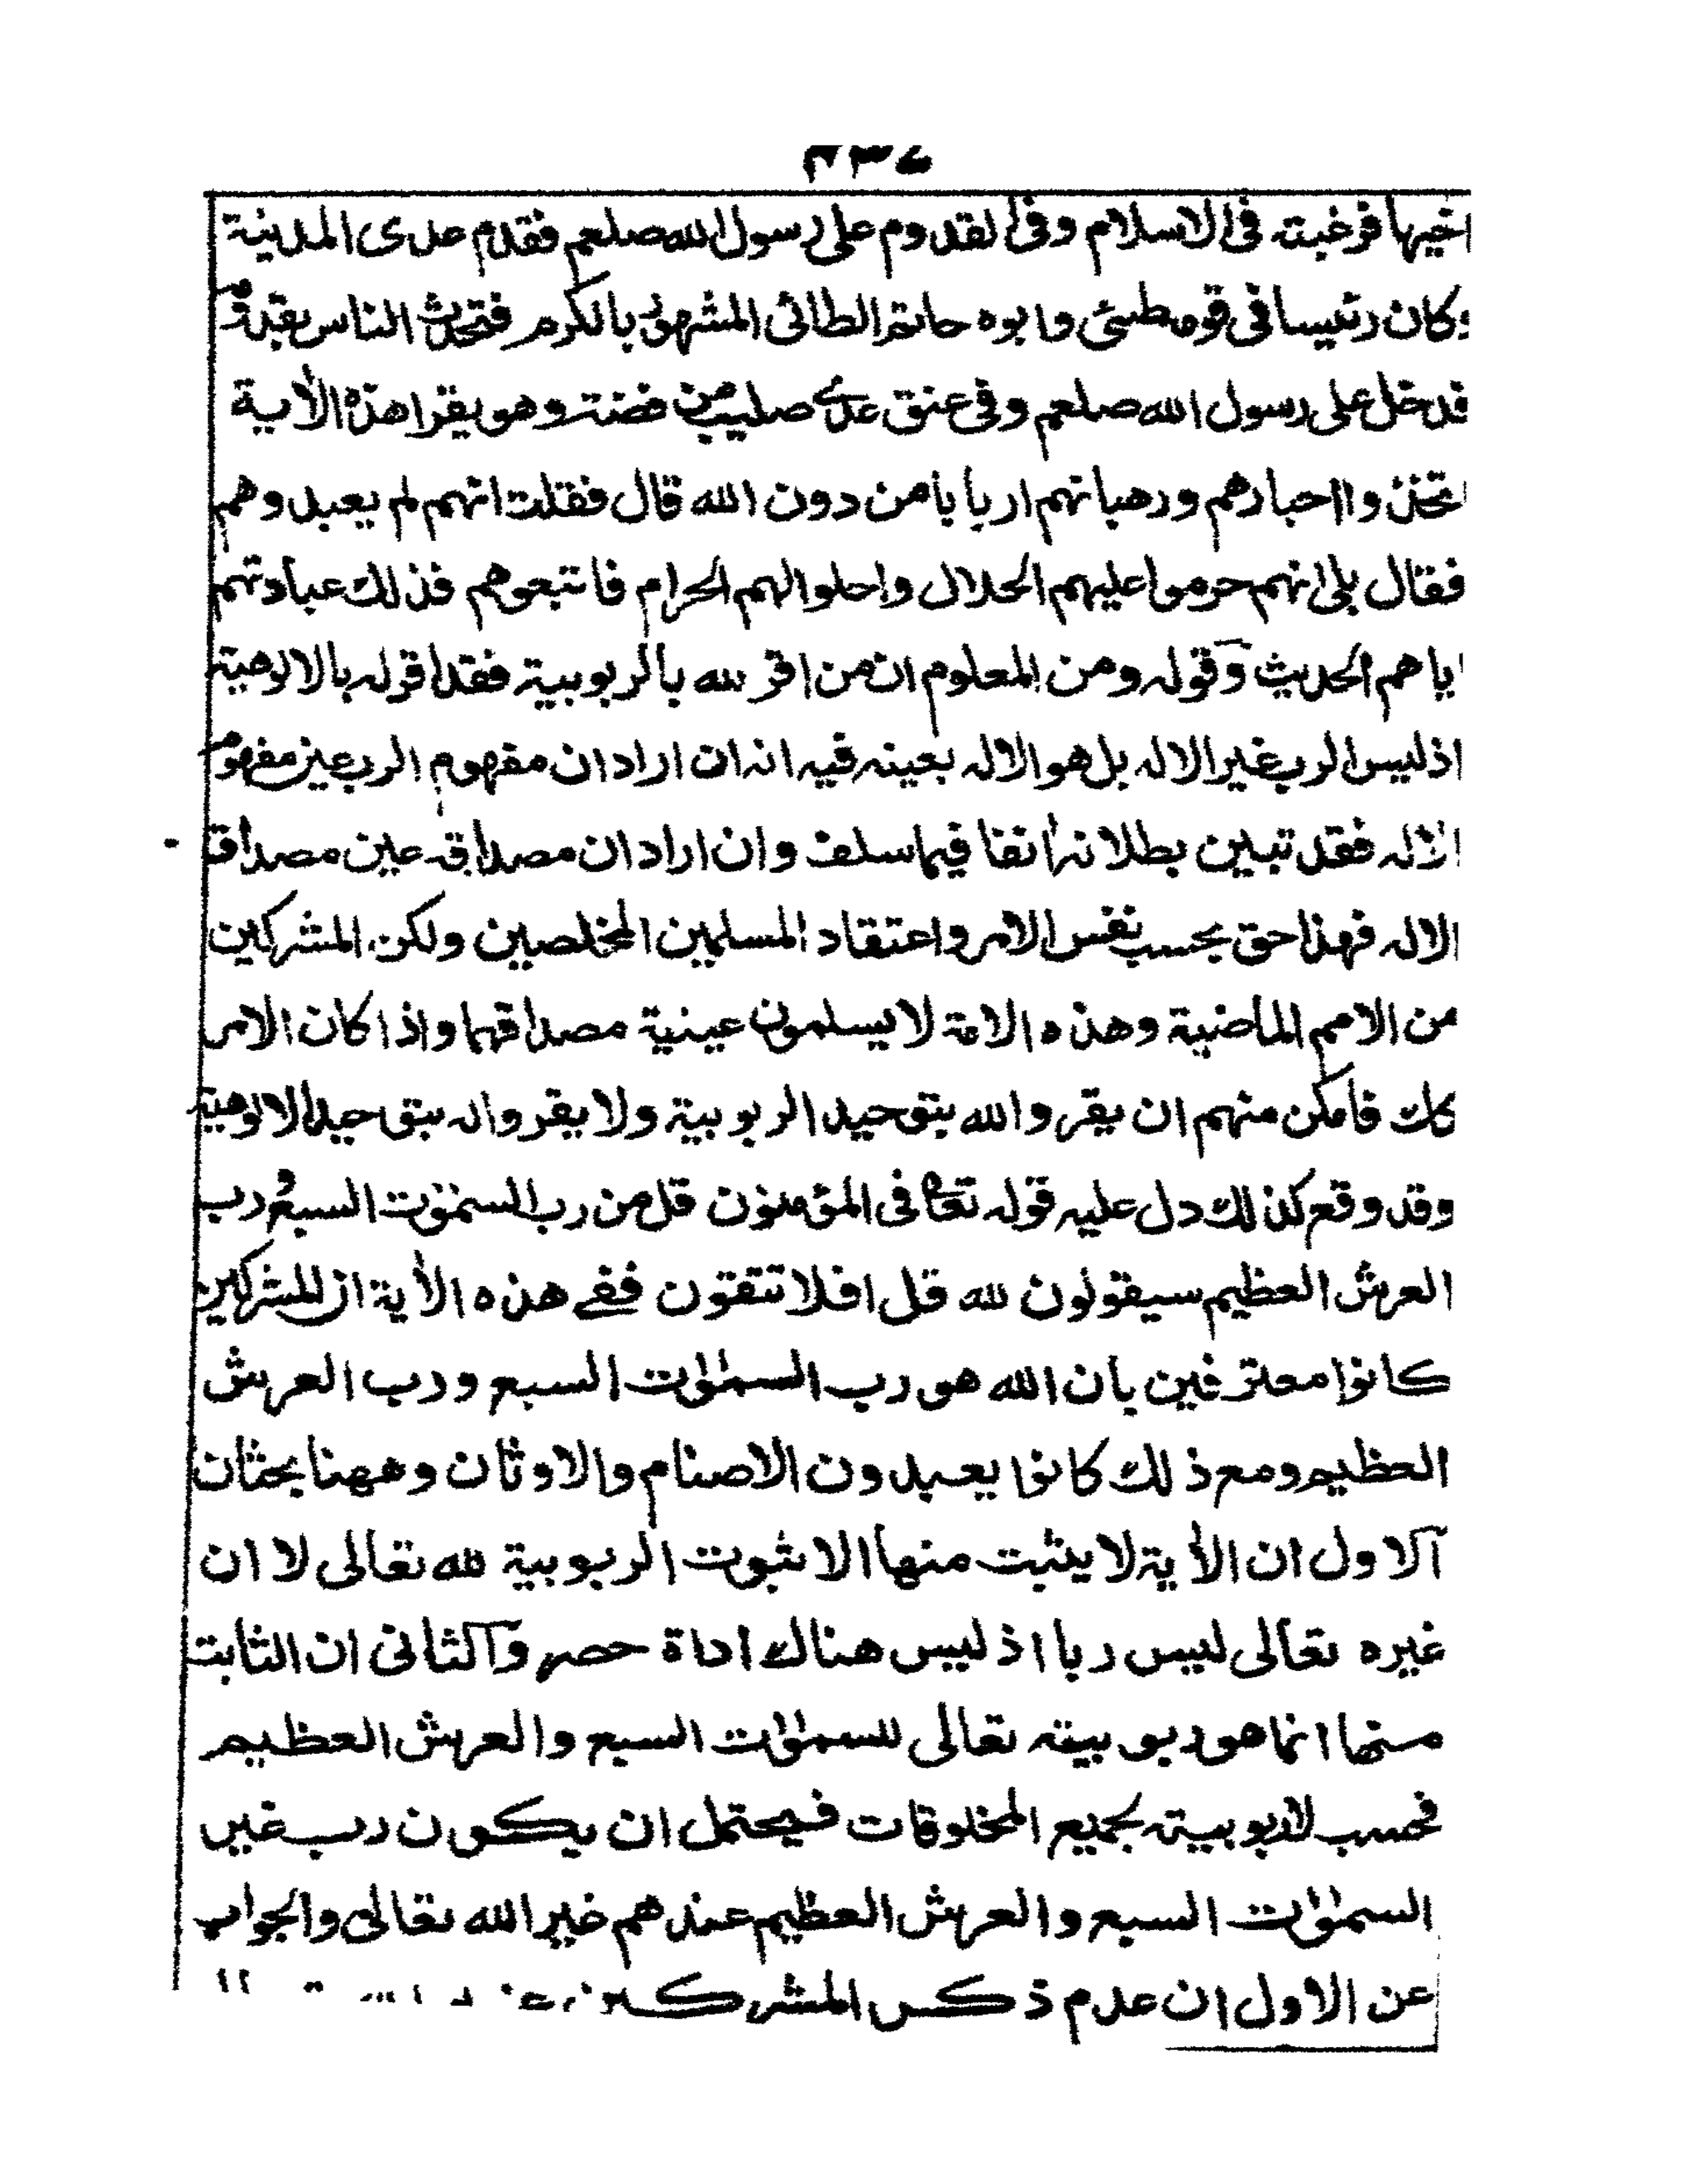 اخيها فرغبته فى الاسلام وفى القدوم على رسول الله صلعم فقدم عدى المدينة
وكان رئيسا فى قومه طيئ وابوه حاتم الطائى المشهور بالكرم فتحدث الناس بقدومه
فدخل على رسول الله صلعم وفى عنق عدى صليب من فضة وهو يقرا هذه الأية
اتخذوا احبارهم ورهبانهم اربابا من دون الله قال فقلت انهم لم يعبدوهم
فقال بلى انهم حرموا عليهم الحلال واحلوا لهم الحرام فاتبعوهم فذلك عبادتهم
اياهم الحديث وقوله ومن المعلوم ان من اقر لله بالربوبية فقد اقر له بالالوهية
اذ ليس الرب غير الاله بل هو الاله بعينه فيه انه ان اراد ان مفهوم الرب عين مفهوم
الاله فقد تبين بطلانه أنفا فيما سلف وان اراد ان مصداقه عين مصداق
الاله فهذا حق بحسب نفس الامر واعتقاد المسلمين المخلصين ولكن المشركين
من الامم الماضية وهذه الامة لا يسلمون عينية مصداقهما واذا كان الامر
كك فامكن منهم ان يقروا لله بتوحيد الربوبية ولا يقروا له بتوحيد الالوهية
وقد وقع كذلك دل عليه قوله تعا فى المؤمنون قل من رب السمٰوٰت السبع ورب
العرش العظيم سيقولون لله قل افلا تتقون ففے هذه الأية ان المشركين
كانوا معترفين بان الله هو رب السمٰوٰت السبع ورب العرش
العظيم ومع ذلك كانوا يعبدون الاصنام والاوثان وههنا بحثان
آلاول ان الأية لا يثبت منها الا ثبوت الربوبية لله تعالى لا ان
غيره تعالى ليس ربا اذ ليس هناك اداة حصر وآلثانى ان الثابت
منها انما هو ربوبيته تعالى للسمٰوٰت السبع والعرش العظيم
فحسب لا ربوبيته بجميع المخلوقات فيحتمل ان يكون رب غير
السمٰوٰت السبع والعرش العظيم عندهم غير الله تعالى والجواب
عن الاول ان عدم ذكر المشركين